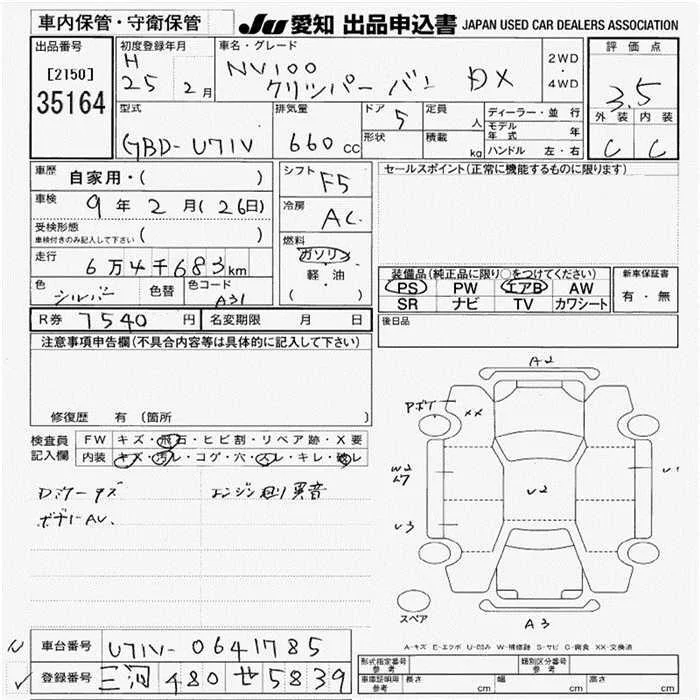 車内保管・守衛保管 JU 愛知 出品申込書 JAPAN USED CAR DEALERS ASSOCIATION
出品番号 初度登録年月 車名・グレード 評価点
[2150] H NV100 2WD
35164 25 2月 クリッパー バン DX ・ 4WD 3.5
型式 排気量 ドア 5 定員 人 ディーラー・並行 外装 内装
GBD-U71V 660cc 形状 積載 kg モデル年式 年 C C
ハンドル 左・右
車歴 自家用・( ) シフト F5 セールスポイント(正常に機能するものに限ります)
車検 9年2月(26日) 冷房 AC
受検形態 ( )
車検付きのみ記入して下さい
燃料
走行 6万4千683km ガソリン
軽油
( )
装備品(純正品に限り○をつけてください) 新車保証書
PS PW エアB AW 有・無
SR ナビ TV カワシート
色 シルバー 色替 色コード A31
R券 7540円 名変期限 月 日 後日品
注意事項申告欄(不具合内容等は具体的に記入して下さい)
修復歴 有(箇所
検査員 FW キズ・飛石・ヒビ割・リペア跡・X要
記入欄 内装 キズ・汚レ・コゲ・穴・スレ・キレ・破レ
エンジン廻り異音
A2
XX
W2
U2
U3
A3
スペア
A-キズ E-エクボ U-凹み W-補修跡 S-サビ C-腐食 XX-交換済
車台番号 U71V-0641785
登録番号 三河480せ5839
形式指定番号 参考 類別区分番号 参考
車庫証明用 参考 長さ cm 幅 cm 高さ cm